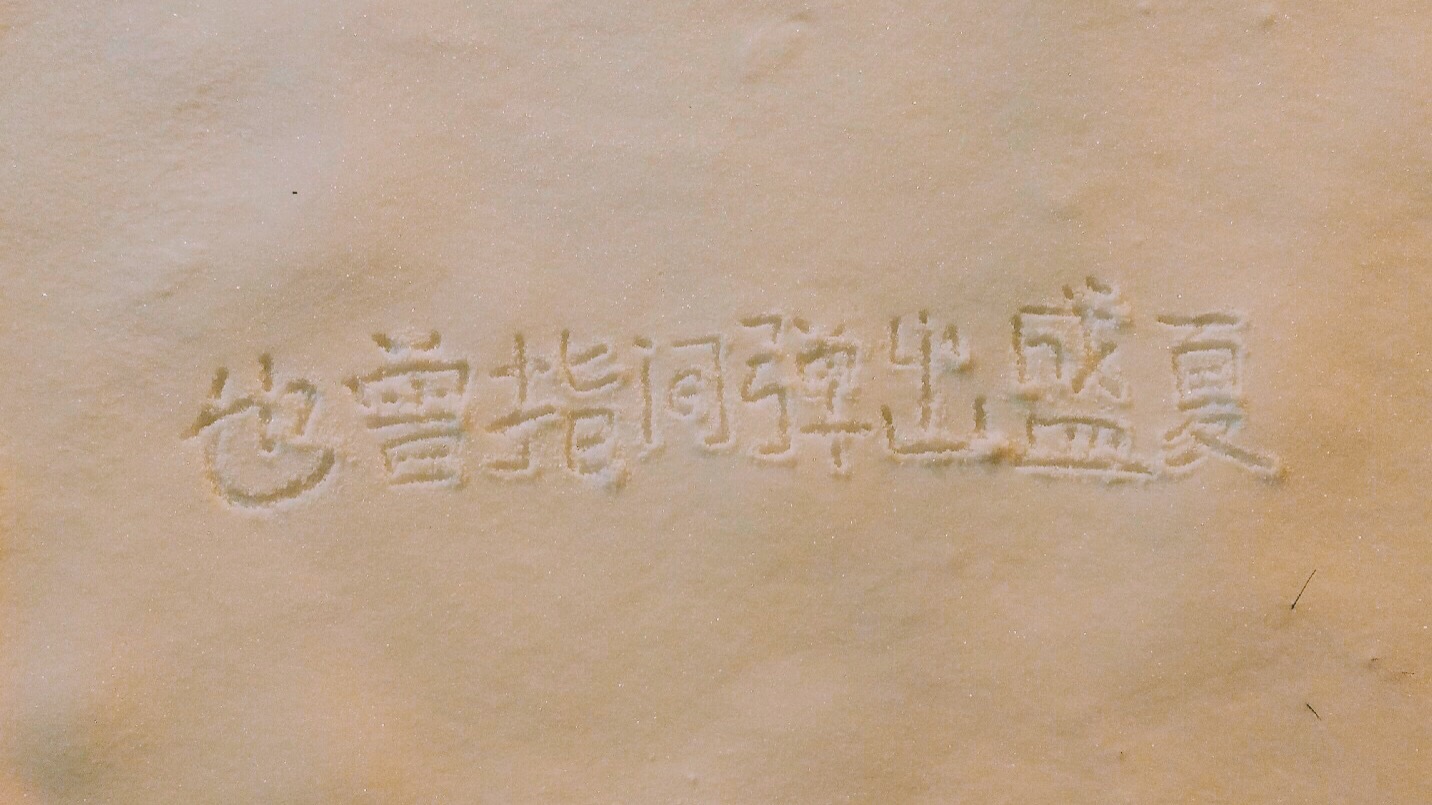 也曾指间弹出盛夏